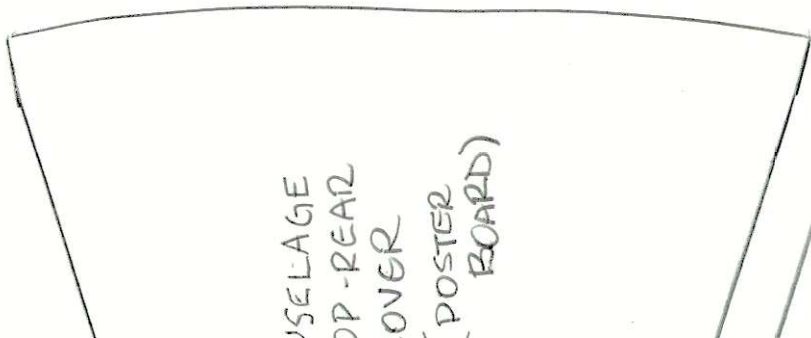 USELAGE
OP-REAR
OVER
(POSTER
BOARD)